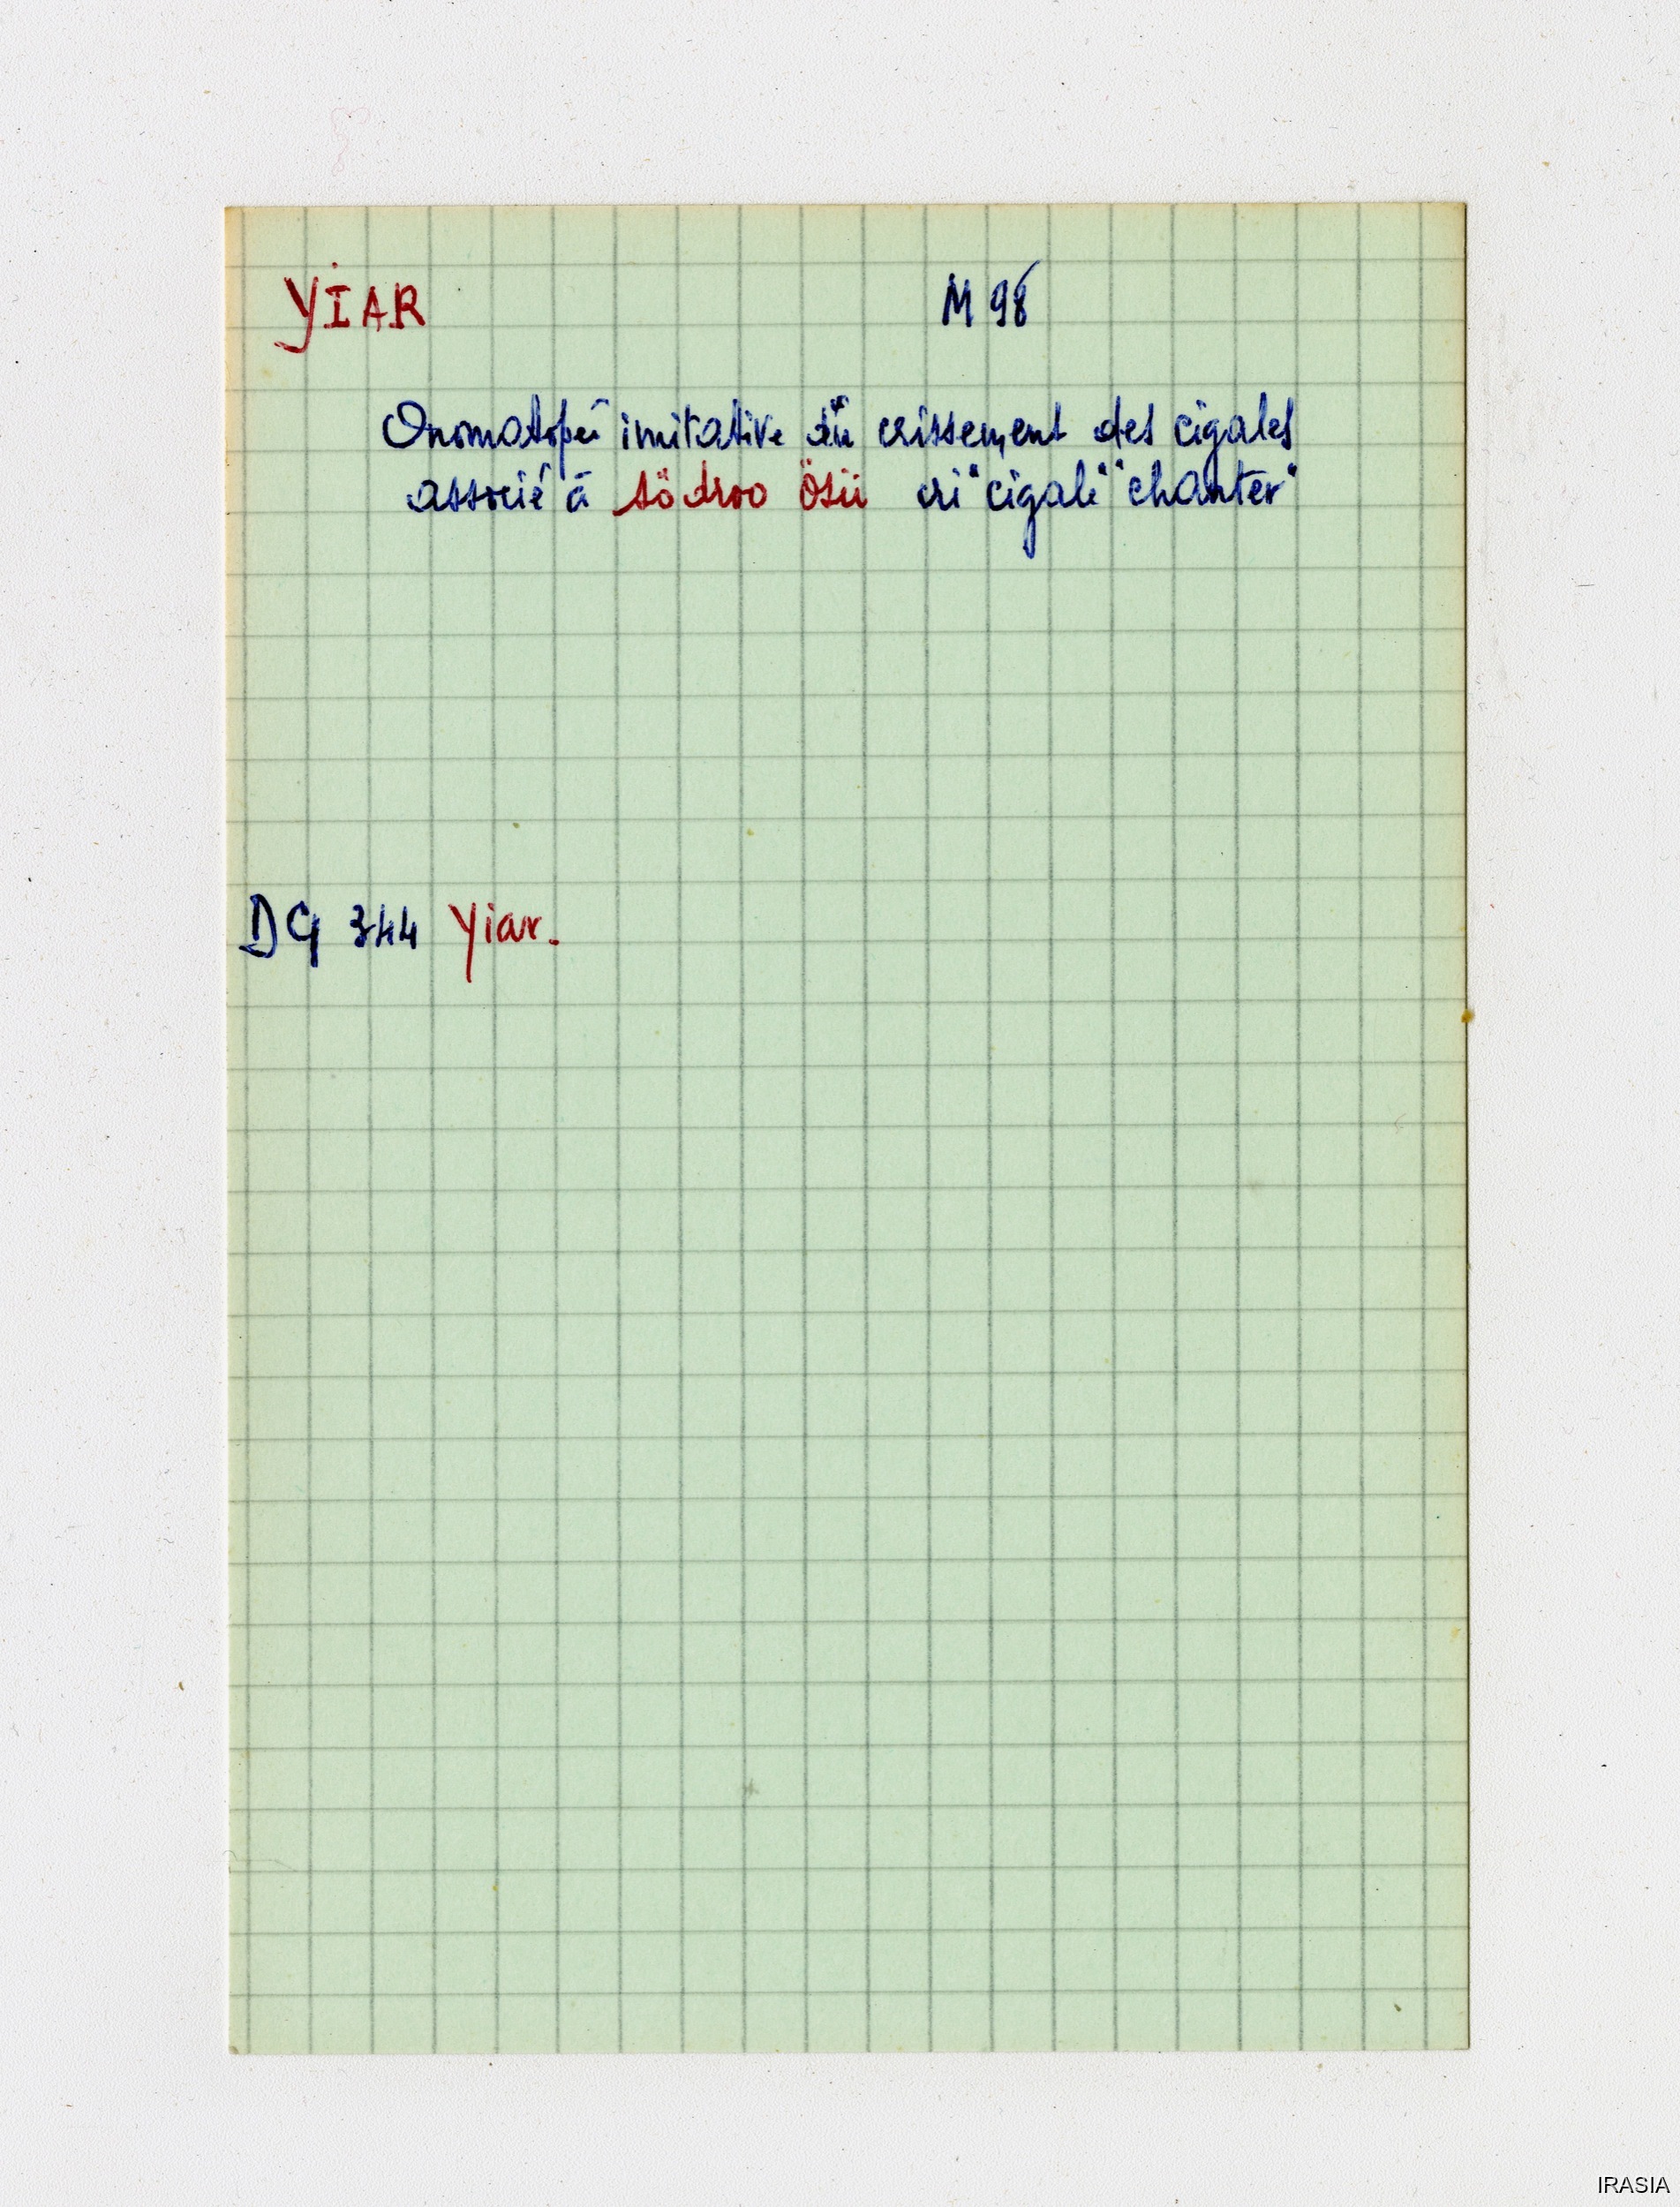 YİAR M 98
Onomatopéé imitative du crissement des cigales
associé à södroo ösii cri "cigale" "chanter"
DG 344 Yiar.
IRASIA